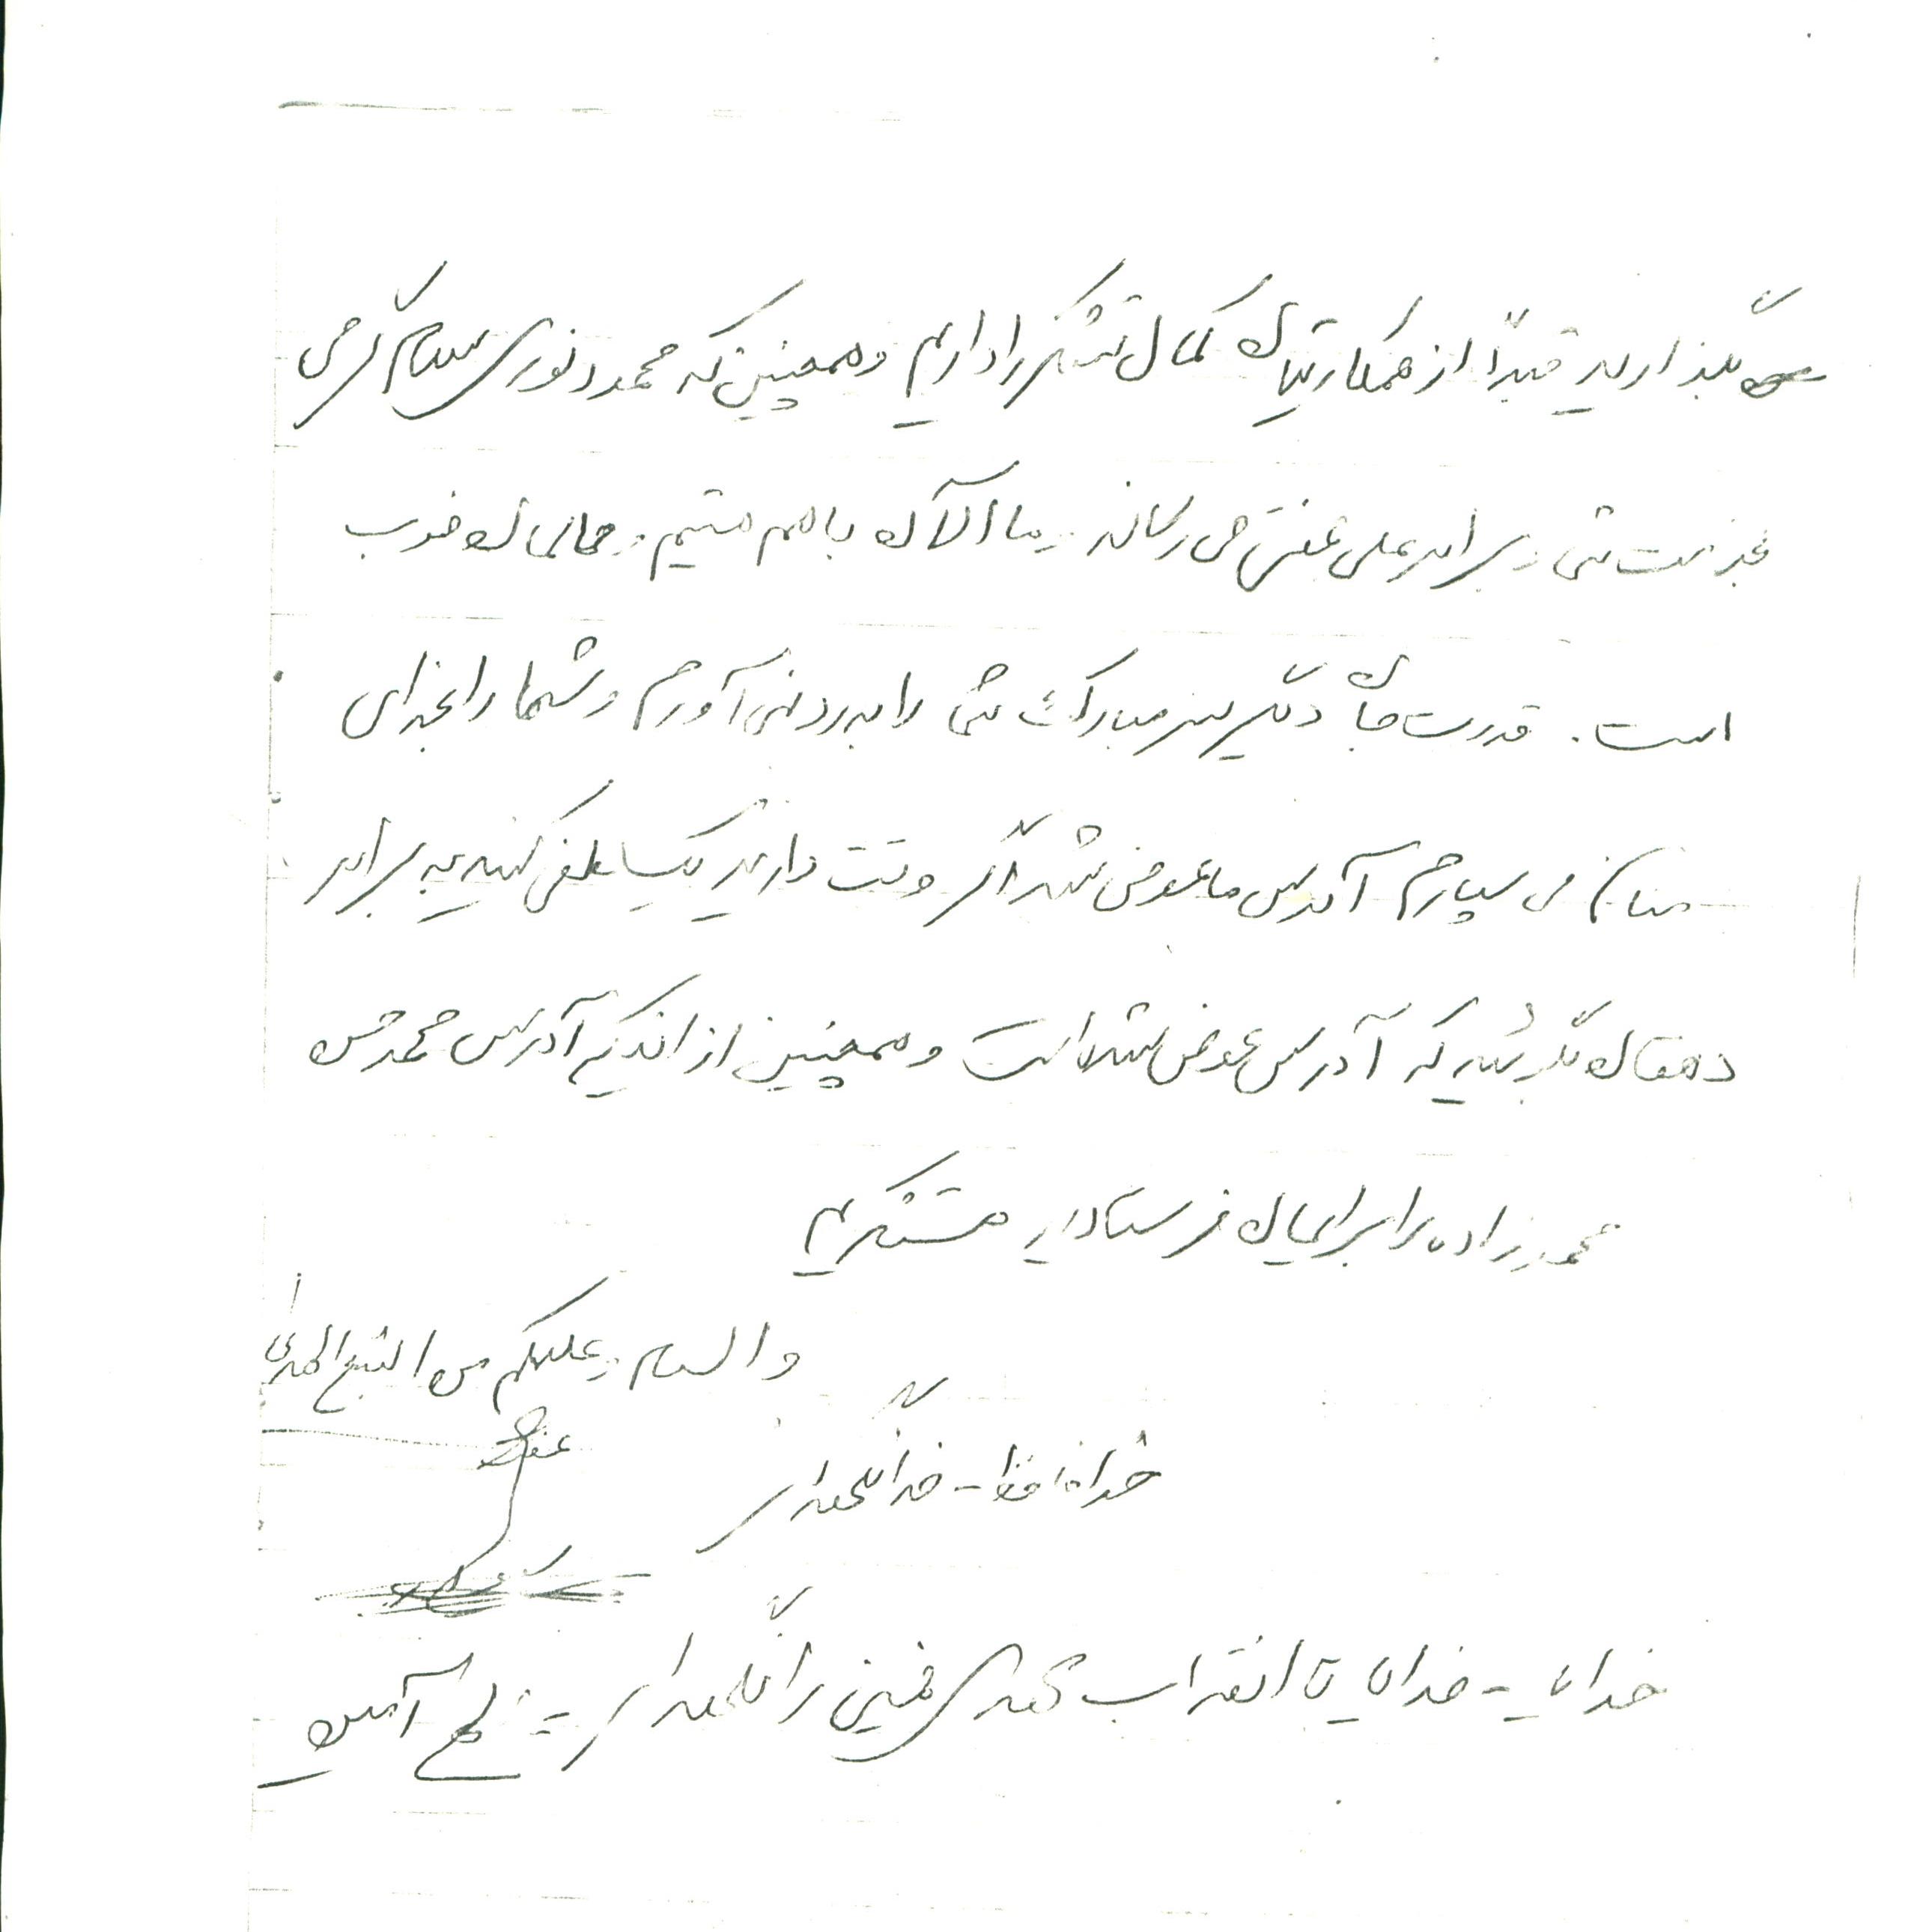 بگذارید قبلاً از همکاریتان کمال تشکر را داریم و همچنین که محمود نوری سلام گرمی
خدمت شما و برادر علی می رساند. ما الآن با هم هستیم و حالمان خوب
است. قدرت جان دیگر سر مبارک شما را به درد نمی آورم و شما را بخدای
منان می سپارم آدرس ما عوض شد اگر وقت دارید یک تلفن کنید به برادر
دهقان بگوئید که آدرس عوض شده است و همچنین از اندکی آدرس محمد حسن
محمدزاده را برایمان فرستادید متشکریم
والسلام علیکم من التبع الهدی
خدا حافظ - خدا نگهدار
خدایا - خدایا تا انقلاب مهدی خمینی را نگهدار - آمین